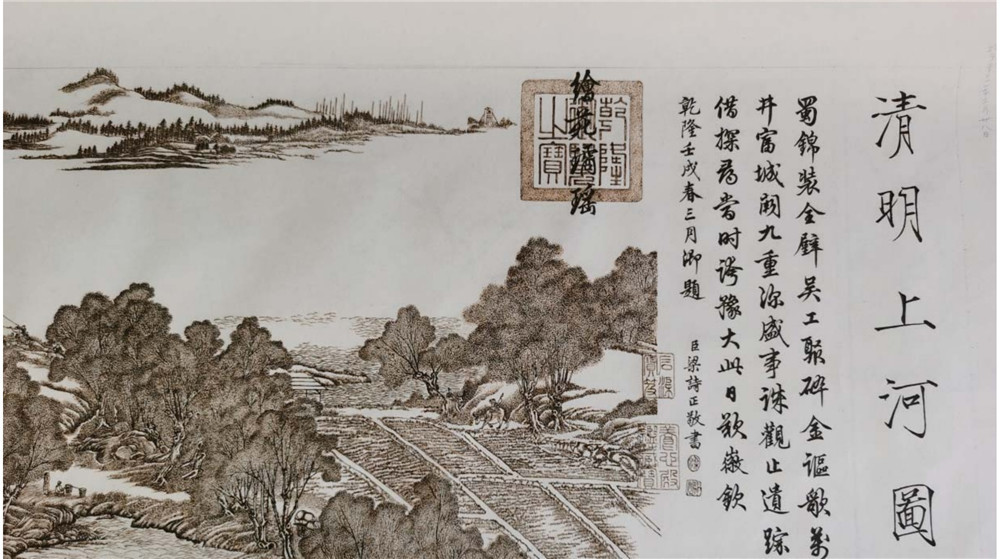 清明上河圖
蜀錦裝金壁吴工聚碎金謳歌萬
井富城闕九重深盛事誅觀止遺踪
借探尋當時誇豫大此日歎徽欽
乾隆壬戌春三月御題
臣梁詩正敬書
繪苑璚瑤
乾隆御覽之寶